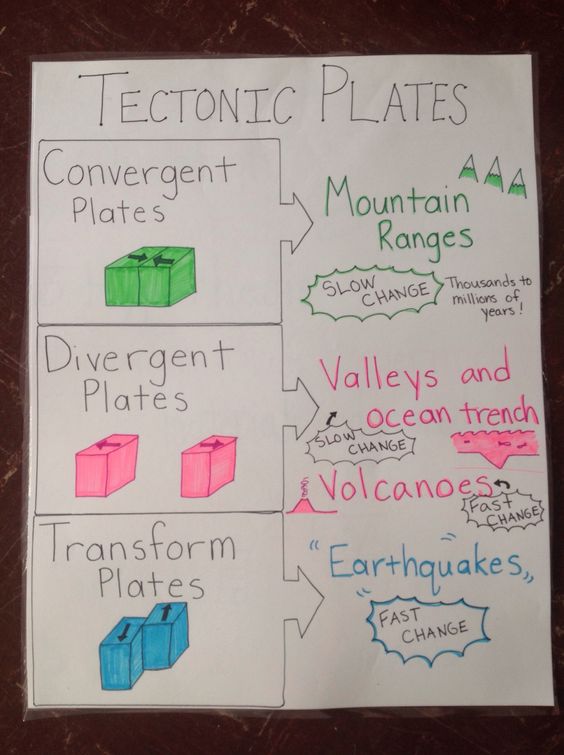 TECTONIC PLATES
Convergent
Plates
Mountain
Ranges
SLOW
CHANGE
Thousands to
millions of
years!
Divergent
Plates
Valleys and
ocean trench
SLOW
CHANGE
Volcanoes
Fast
CHANGE
Transform
Plates
"Earthquakes"
FAST
CHANGE